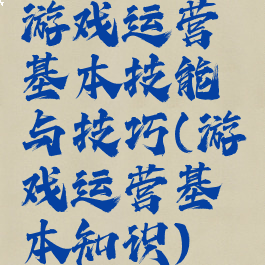 游戏运营
基本技能
与技巧(游
戏运营基
本知识)